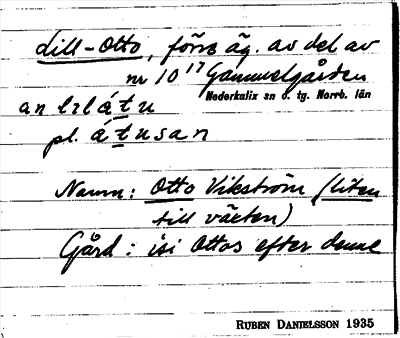 Lill-Otto, förra äg. av del av
nr 10¹⁷ Gammelgården
Nederkalix sn o. tg. Norrb. län
an lılátu
pl. átusan
Namn: Otto Vikström (liten
till växten)
Gård: isi Ottos efter denne
RUBEN DANIELSSON 1935